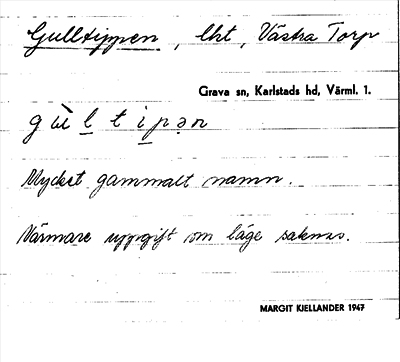 Gulltippen, lht, Västra Torp
Grava sn, Karlstads hd, Värml. 1.
gùltipən
Mycket gammalt namn.
Närmare uppgift om läge saknas.
MARGIT KJELLANDER 1947